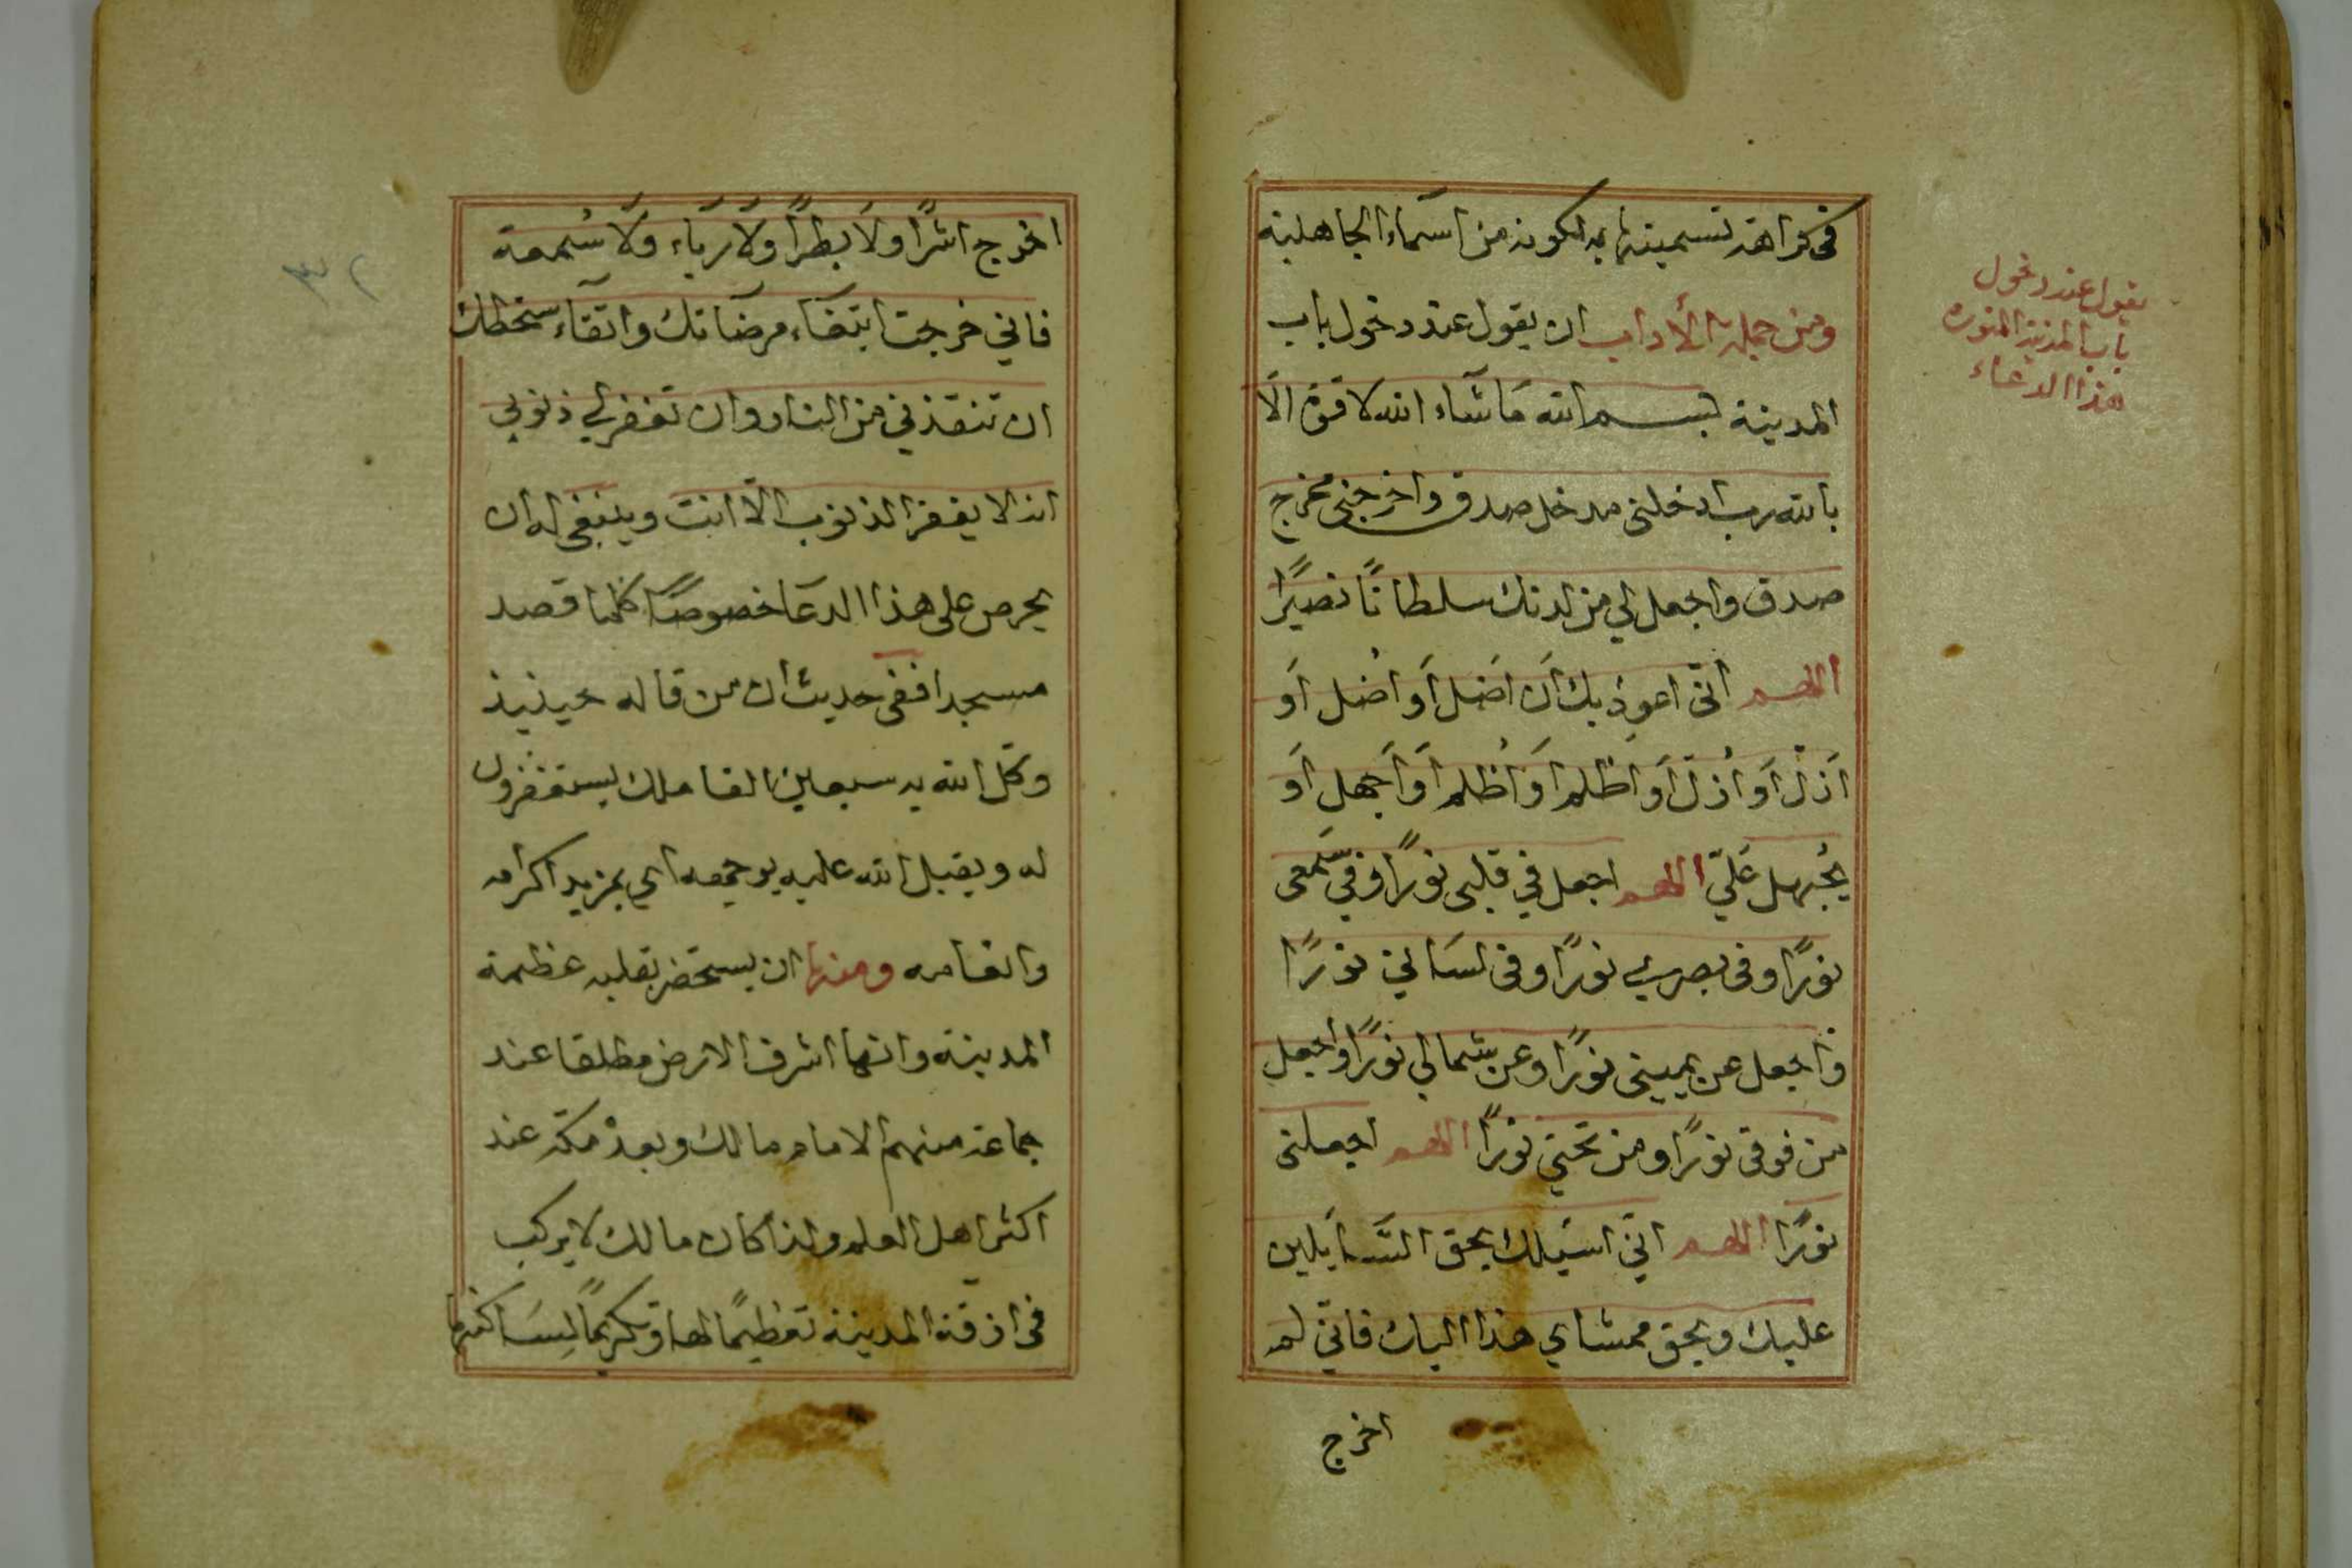 في كراهة تسميتها به لكونه من اسماء الجاهلية
ومن جملة الأداب ان يقول عند دخول باب
المدينة بسم الله مَا شآء الله لا قوة الّا
بالله رب ادخلني مدخل صدق واخرجني مخرج
صدق واجعل لي من لدنك سلطانًا نصيرًا
اللهم انّي اعوذ بك اَن اَضل اَو اُضل اَو
اَزل اَو اُزل اَو اظلم اَو اُظلم اَو اَجهل اَو
يُجهل عَليّ اللهم اجعل في قلبي نورًا وفي سَمعي
نورًا وفي بصري نورًا وفي لسَاني نورًا
واجعل عن يميني نورًا وعن شمالي نورًا واجعل
من فوقي نورًا ومن تحتي نورًا اللهم اجعلني
نورًا اللهم انّي اسئلك بحق السَّايلين
عليك وبحق ممشاي هذا اليك فانّي لم
اخرج
يقول عند دخول
باب المدينة المنوره
هذا الدعاء
اخرج اشرًا ولَا بطرًا ولَا ريَاء ولَا سُمعة
فاني خرجت ابتغَاء مرضَاتك واتقآء سخطك
ان تنقذني من النار وان تغفر لي ذنوبي
انه لا يغفر الذنوب الّا انت وينبغي له ان
يحرص على هذا الدعَا خصوصًا كلما قصد
مسجدا ففي حديث ان من قاله حينيذ
وكّل الله به سبعين الف ملك يستغفرون
له ويقبل الله عليه بوجهه اي بمزيد اكرامه
وانعامه ومنها ان يستحضر بقلبه عظمة
المدينة وانها اشرف الارض مطلقا عند
جماعة منهم الامام مالك وبعد مكة عند
اكثر اهل العلم ولذا كان مالك لا يركب
في ازقة المدينة تعظيمًا لها وتكريمًا لسَاكنها
٢٣